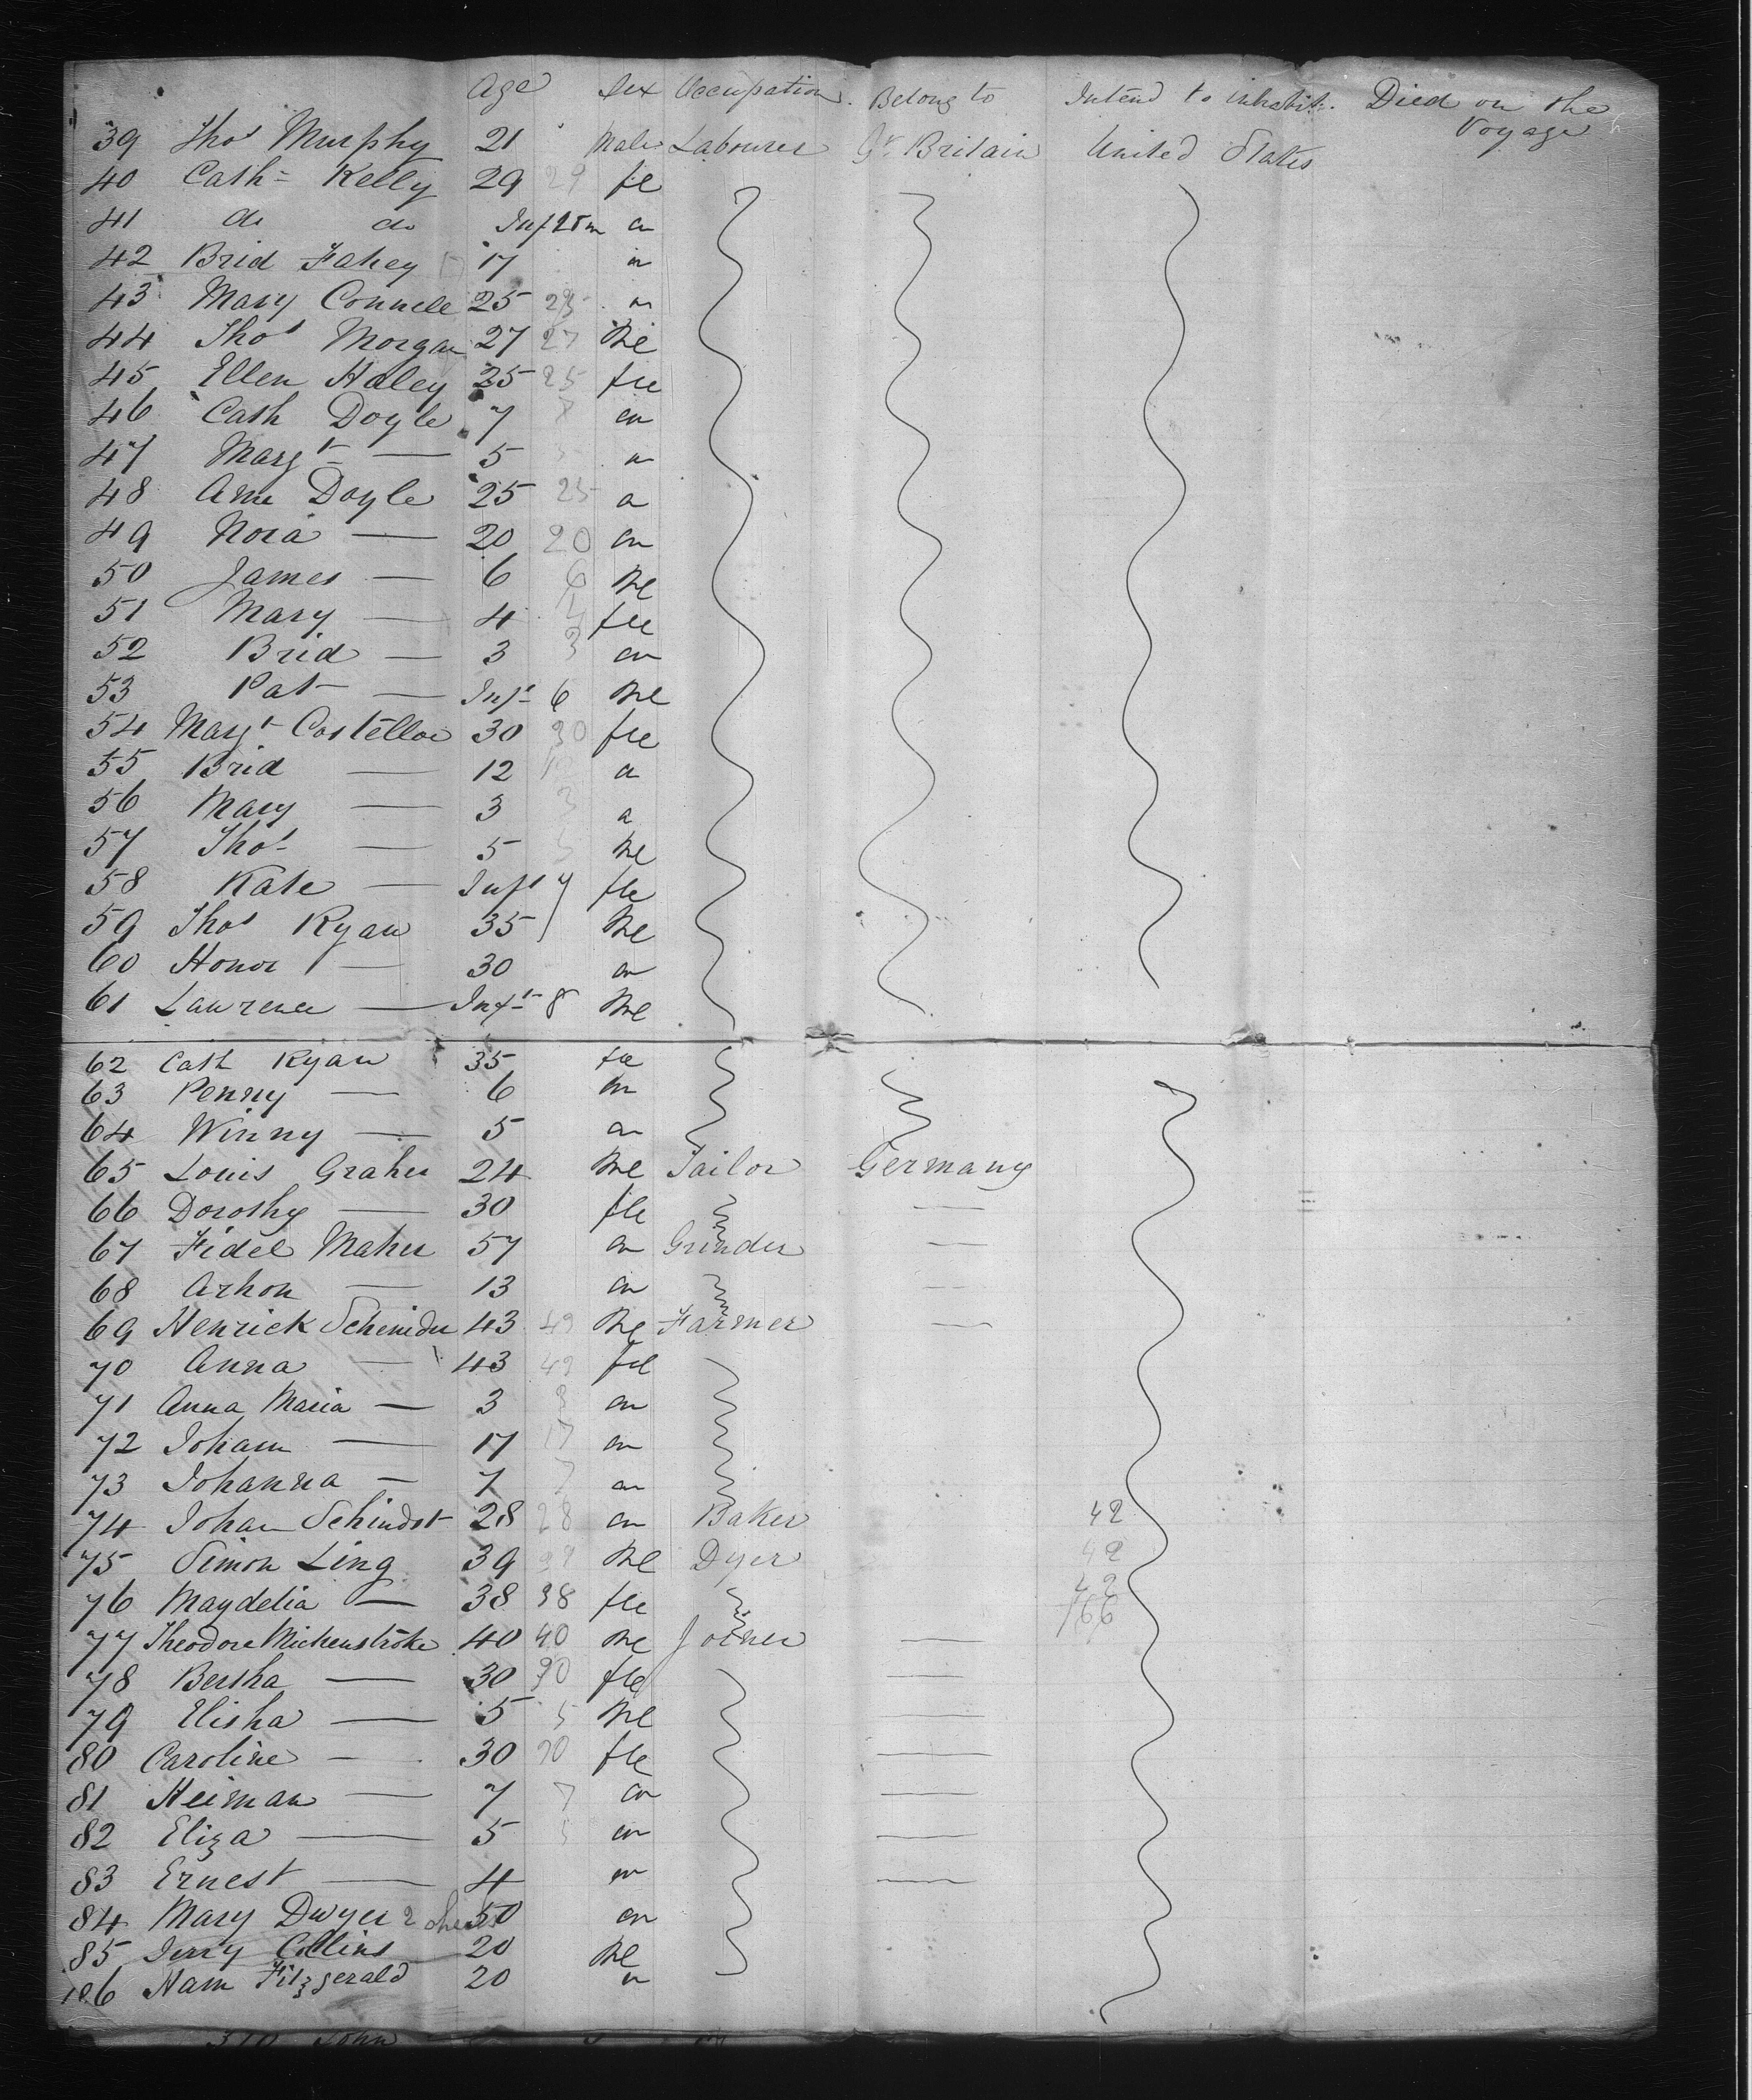 Age Sex Occupation Belong to Intend to inhabit. Died on the
Voyage
39 Thos Murphy 21 Male Labourer Gt. Britain United States
40 Cath= Kelly 29 29 fe
41 do do Inf m do
42 Brid Fahey 17 do
43 Mary Connell 25 25 do
44 Thos Morgan 27 27 Me
45 Ellen Haley 25 25 fle
46 Cath Doyle 7 7 do
47 Margt — 5 5 do
48 Ann Doyle 25 25 do
49 Nora — 20 20 do
50 James — 6 6 Me
51 Mary — 4 4 fle
52 Brid — 3 3 do
53 Pat — Inft 6 Me
54 Margt Costelloe 30 30 fle
55 Brid — 12 12 do
56 Mary — 3 3 do
57 Thos — 5 5 Me
58 Kate — Inft fle
59 Thos Ryan 35 Me
60 Honor — 30 do
61 Lawrence — Inft 8 Me
62 Cath Ryan 35 fle
63 Penny — 6 do
64 Winny — 5 do
65 Louis Graher 24 Me Tailor Germany
66 Dorothy — 30 fle —
67 Fidel Maher 57 do Grinder —
68 Arhon — 13 do —
69 Henrick Schnider 43 43 Me Farmer —
70 Anna — 43 43 fle
71 Anna Maria — 3 3 do
72 Joham — 17 17 do
73 Johanna — 7 7 do
74 Johan Schindst 28 28 do Baker 42
75 Simon Ling 39 39 Me Dyer 42
76 Maydelia — 38 38 fle 42
166
77 Theodore Michenströke 40 40 Me Joiner —
78 Bertha — 30 30 fle —
79 Elisha — 5 5 Me —
80 Caroline — 30 30 fle —
81 Heiman — 7 7 do —
82 Eliza — 5 5 do —
83 Ernest — 4 do —
84 Mary Dwyer 2 50 do
85 Jerry Collins 20 Me
186 Ham Fitzgerald 20 do
310 John